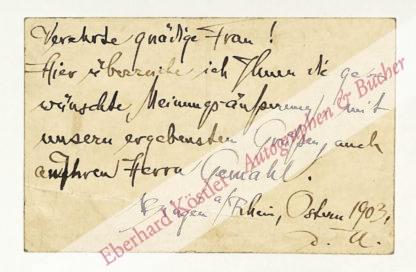 Verehrte gnädige Frau!
Hier übersende ich Ihnen die ge-
wünschte Meinungsäußerung mit
unsern ergebensten Grüßen, auch
an Ihren Herrn Gemahl.
a/Rhein, Ostern 1903.
Eberhard Köstler Autographen & Bücher